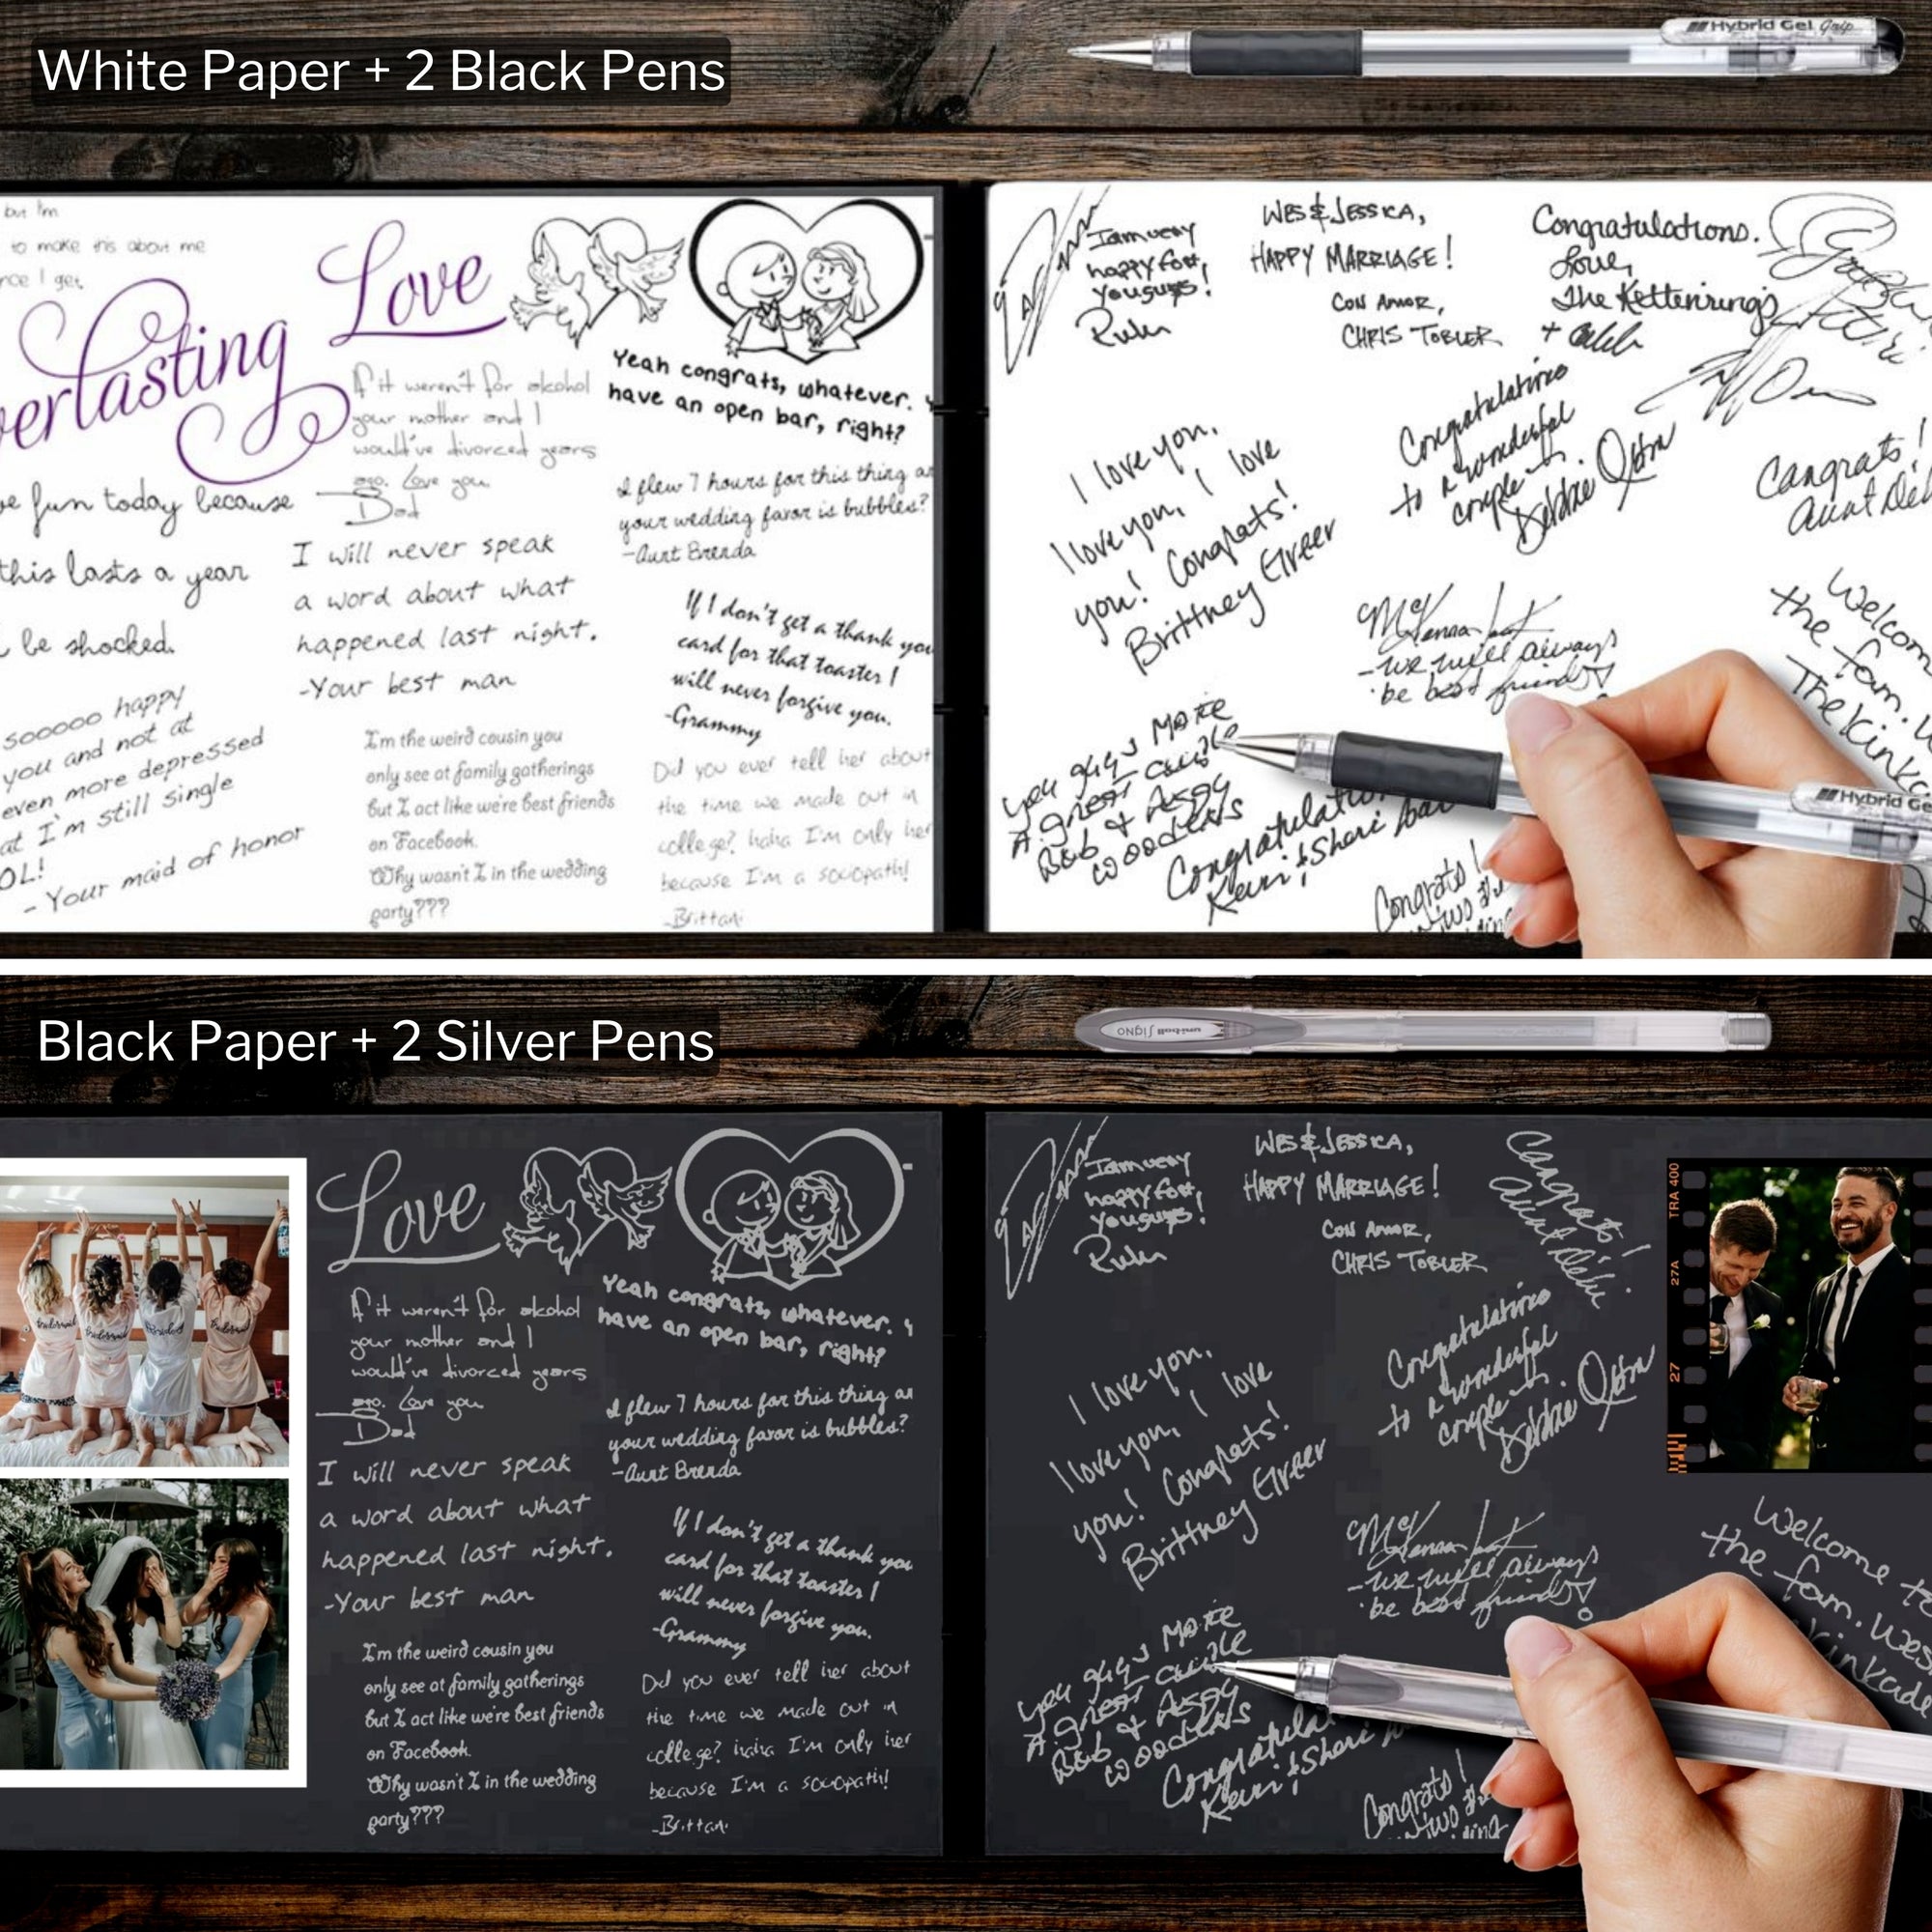 White Paper + 2 Black Pens
Hybrid Gel Grip
but I'm
to make this about me
nce I get
verlasting
Love
If it weren't for alcohol
your mother and I
would've divorced years
ago. Love you.
Dad
Yeah congrats, whatever. Y
have an open bar, right?
ve fun today because
this lasts a year
be shocked.
I flew 7 hours for this thing an
your wedding favor is bubbles?
-Aunt Brenda
I will never speak
a word about what
happened last night.
-Your best man
If I don't get a thank you
card for that toaster I
will never forgive you.
-Grammy
sooooo happy
you and not at
even more depressed
at I'm still single
OL!
- Your maid of honor
I'm the weird cousin you
only see at family gatherings
but I act like we're best friends
on Facebook.
Why wasn't I in the wedding
party???
Did you ever tell her about
the time we made out in
college? haha I'm only her
because I'm a sociopath!
-Brittani
I am very
happy for
you guys!
WES & JESSICA,
HAPPY MARRIAGE!
CON AMOR,
CHRIS TOBLER
Congratulations.
Love,
The Ketterings
+ Caleb
I love you,
I love you, I love
you! Congrats!
Brittney Greer
Congratulations
to a wonderful
couple
Congrats!
Aunt Debi
McKenna
-we will always
be best friends
Welcome
the fam.
The Kinkad
you guys MAKE
A great couple
Bob & Peggy
Woodens
Congratulatio
Kevin & Shari
Congrats!
Hybrid Ge
Black Paper + 2 Silver Pens
uni-ball Signo
Love
If it weren't for alcohol
your mother and I
would've divorced years
ago. Love you
Dad
Yeah congrats, whatever. Y
have an open bar, right?
I flew 7 hours for this thing an
your wedding favor is bubbles?
-Aunt Brenda
I will never speak
a word about what
happened last night.
-Your best man
If I don't get a thank you
card for that toaster I
will never forgive you.
-Grammy
I'm the weird cousin you
only see at family gatherings
but I act like we're best friends
on Facebook.
Why wasn't I in the wedding
party???
Did you ever tell her about
the time we made out in
college? haha I'm only her
because I'm a sociopath!
-Brittani
I am very
happy for
you guys!
WES & JESSICA,
HAPPY MARRIAGE!
CON AMOR,
CHRIS TOBLER
Congrats!
Aunt Debi
TRA 400
27A
27
Congratulations
to a wonderful
couple
I love you,
I love you, I love
you! Congrats!
Brittney Greer
McKenna
-we will always
be best friends
Welcome to
the fam. Wes
inkad
you guys MAKE
A great couple
Bob & Peggy
Woodens
Congratulat
Kevin & Shari
Congrats!